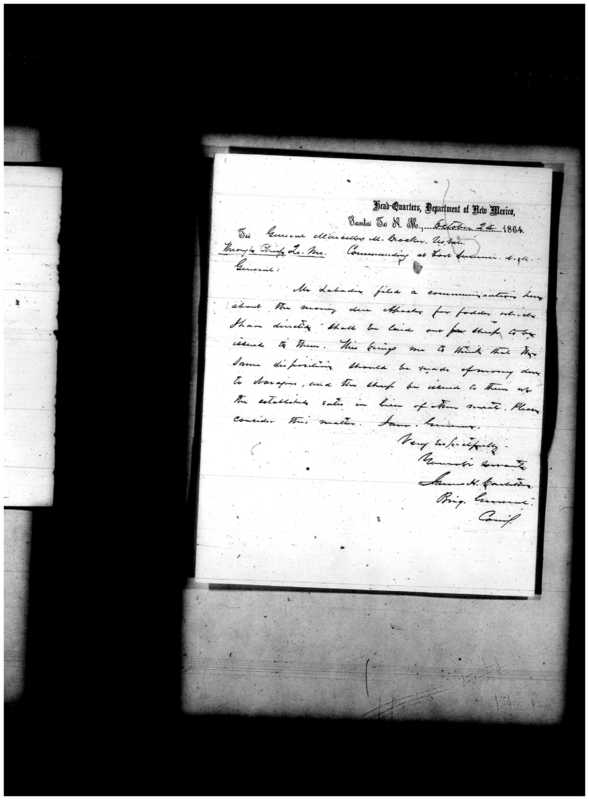 Head-Quarters, Department of New Mexico,
Santa Fe N. M., October 1864.
To General Marcellus M. Crocker, U.S. Vols
Commanding at Fort Sumner. N.M.
General:
Mr Labadie filed a communication here
about the money due Apaches for fodder which
I have directed shall be laid out for sheep to be
issued to them. This brings me to think that the
same disposition should be made of money due
to Navajoes, and the sheep be issued to them at
the established rates in lieu of other meat. Please
consider this matter. I am, General,
Very respectfully
Your obt servant
James H. Carleton
Brig. General
Comd'g